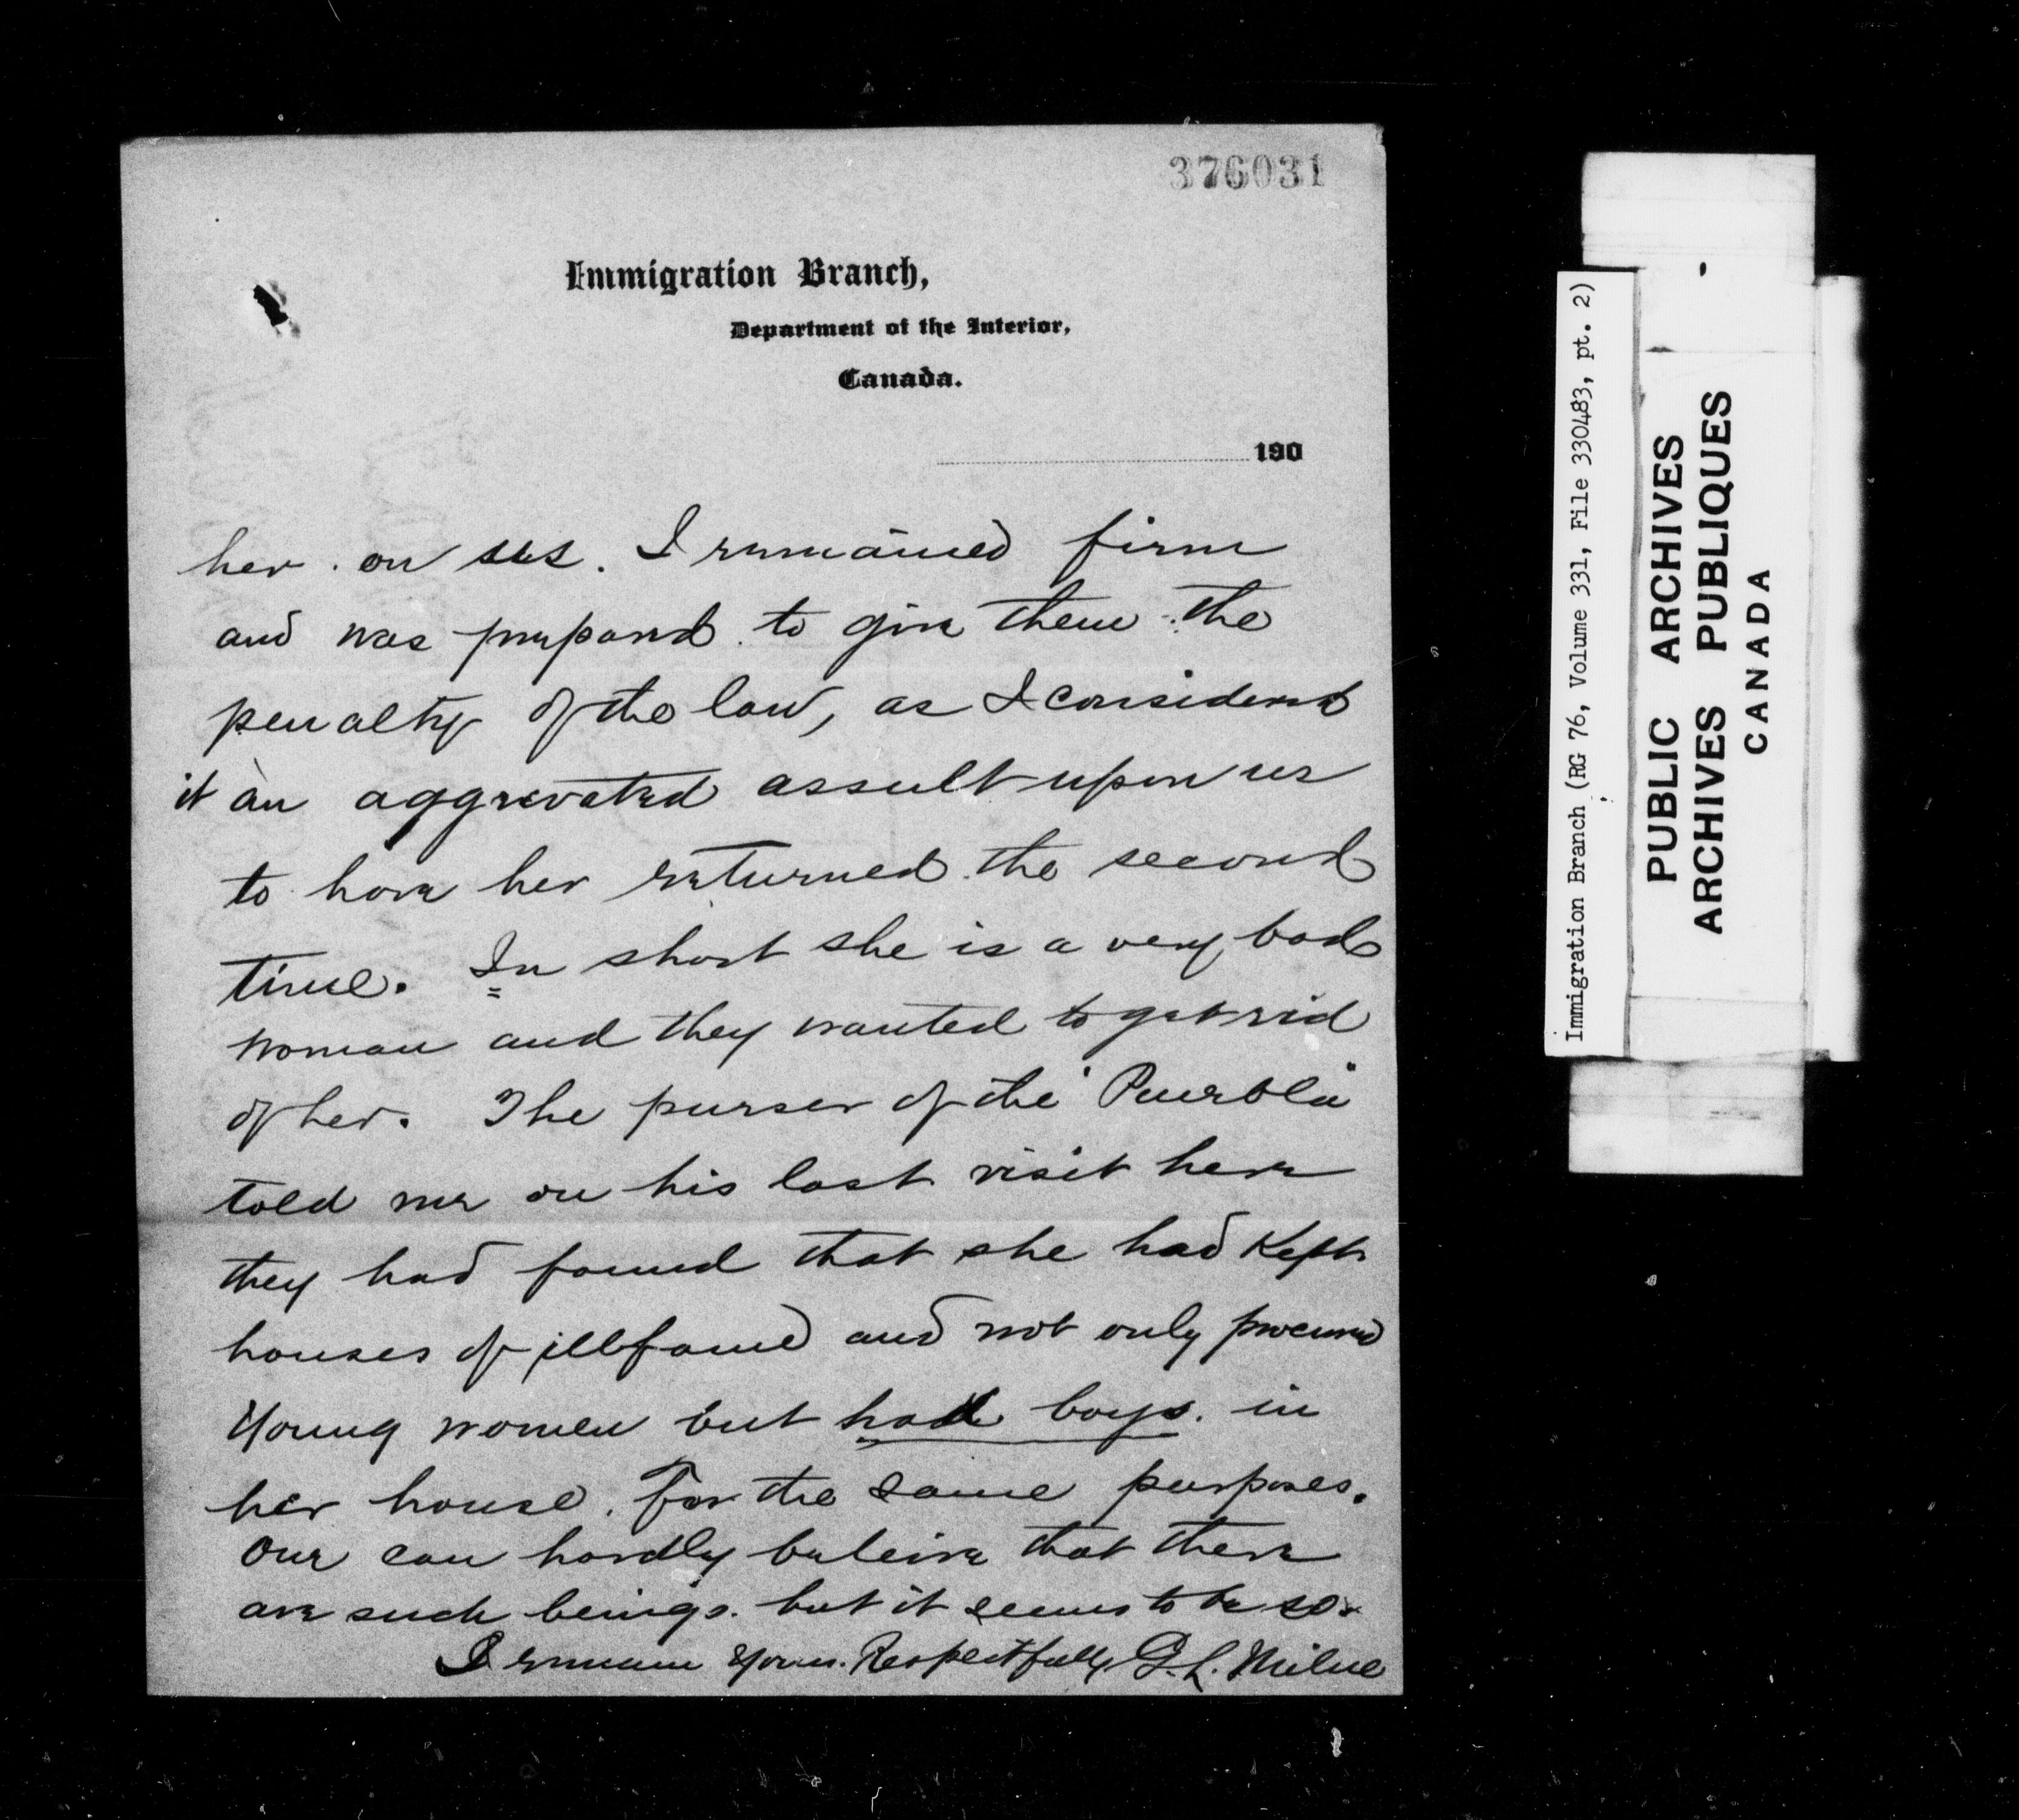 376031
Immigration Branch,
Department of the Interior,
Canada.
190
her. on us. I remained firm
and was prepared to give them the
penalty of the law, as I considered
it an aggrevated assult upon us
to have her returned the second
time. In short she is a very bad
woman and they wanted to get rid
of her. The purser of the "Puerbla"
told me on his last visit here
they had found that she had kept
houses of illfame and not only procured
young women but had boys in
her house. for the same purposes.
One can hardly beleive that there
are such beings. but it seems to be so.
I remain Yours. Respectfully G. L. Milne
Immigration Branch (RG 76, Volume 331, File 330483, pt. 2)
PUBLIC ARCHIVES
ARCHIVES PUBLIQUES
CANADA